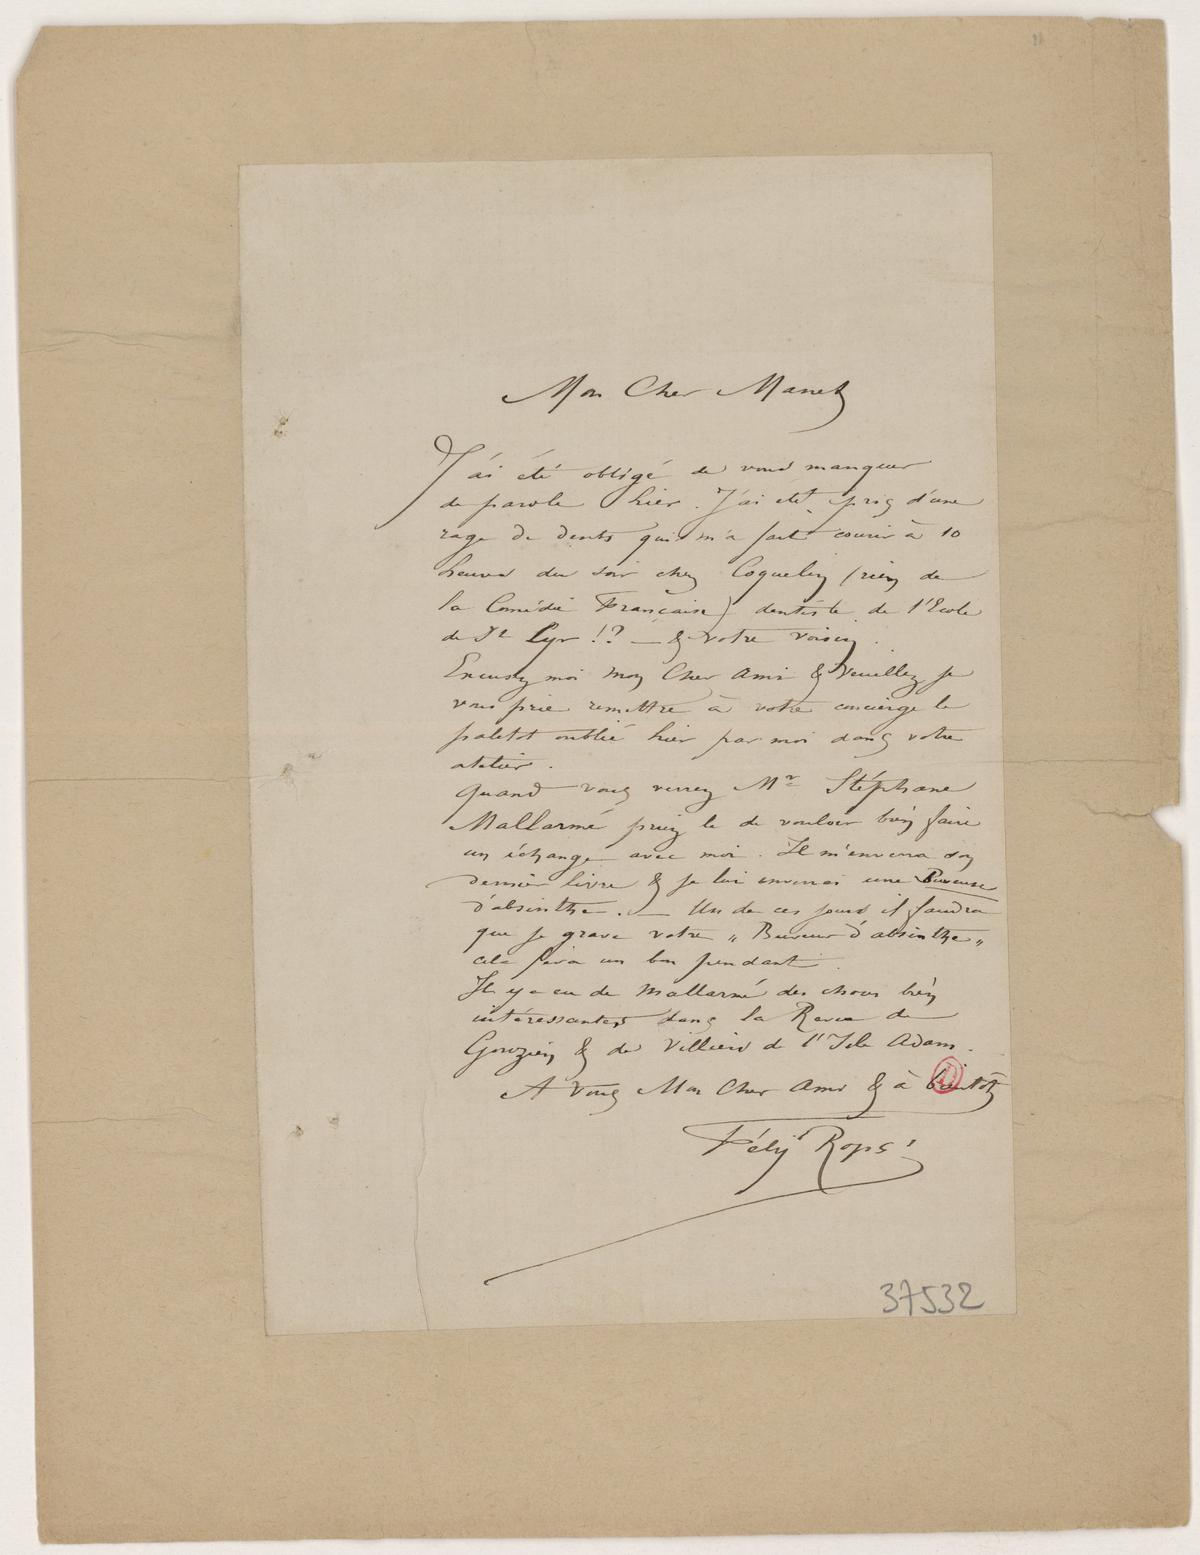 Mon Cher Manet
J'ai été obligé de vous manquer
de parole hier. J'ai été pris d'une
rage de dents qui m'a fait courir à 10
heures du soir chez Coquelin (rien de
la Comédie Française) dentiste de l'Ecole
de St Cyr !? — & votre voisin.
Excusez moi mon Cher Ami & veuillez je
vous prie remettre à votre concierge le
paletot oublié hier par moi dans votre
atelier.
Quand vous verrez Mr Stéphane
Mallarmé priez le de vouloir bien faire
un échange avec moi. Il m'enverra son
dernier livre & je lui enverrai une Buveuse
d'absinthe. — Un de ces jours il faudra
que je grave votre „ Buveur d'absinthe „
cela fera un bon pendant.
Il y a eu de Mallarmé des choses bien
intéressantes dans la Revue de
Gouzien & de Villiers de l'Isle Adam.
A vous Mon Cher Ami & à bientôt
Fély Rops
37532